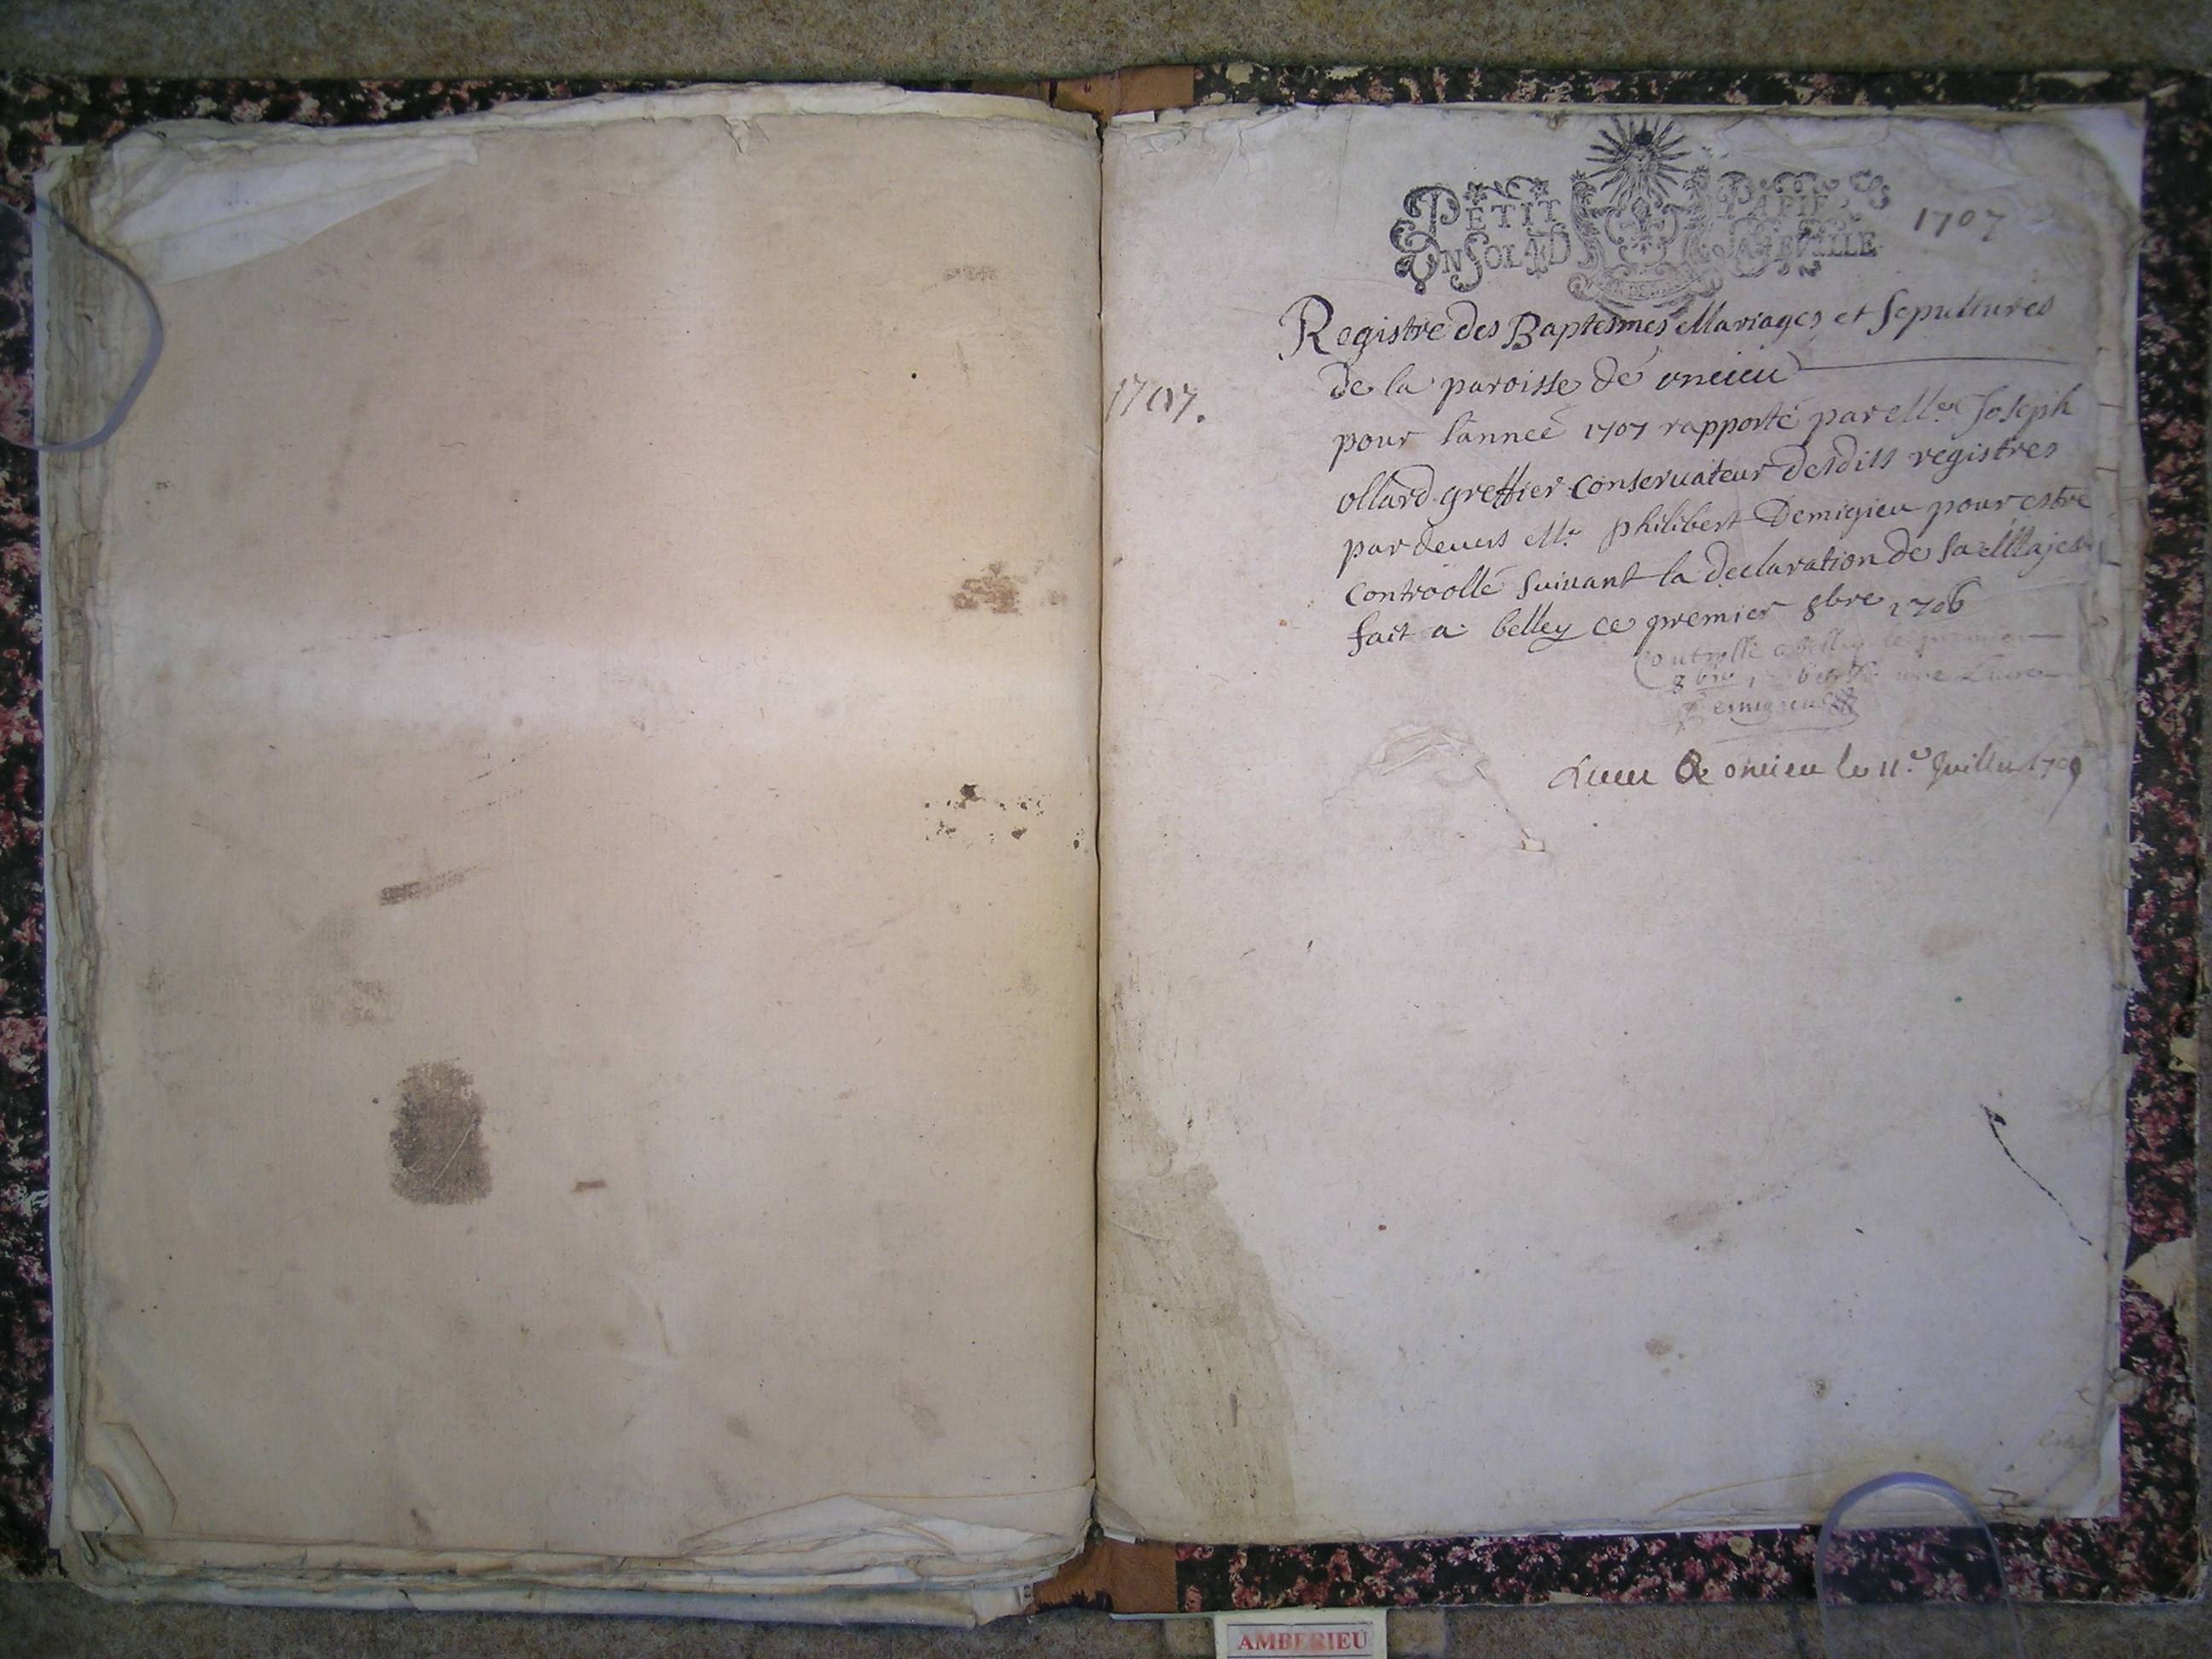 PETIT PAPIER
UN SOL 4D LA FEUILLE
1707
Registre des Baptesmes Mariages et Sepultures
De la paroisse de oncieu
1707.
pour lannee 1707 rapporté par Me Joseph
ollard greffier conservateur desdits registres
pardevers Me philibert Demigieu pour estre
controollé suivant la declaration de sa Majesté
fait a belley ce premier 8bre 1706
Controllé a belley le premier
8bre une Livre
Demigieu
oncieu le 11e Juillet 1709
AMBERIEU